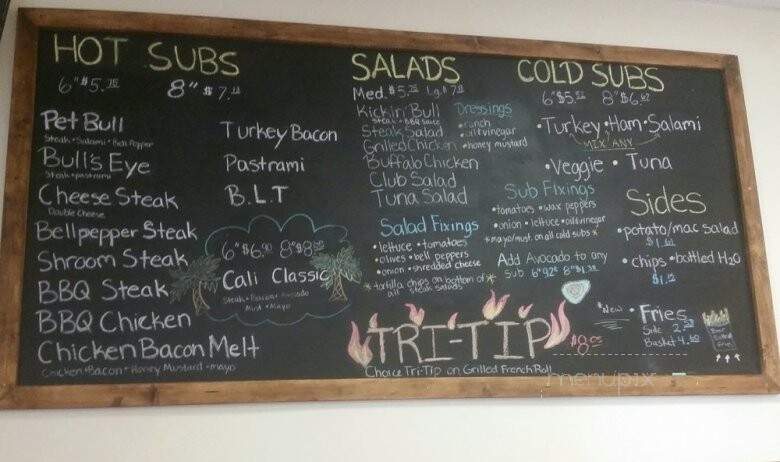 HOT SUBS
6" $5.75 8" $7.
Pet Bull
Steak • Salami • Bell Pepper
Bull's Eye
Steak • pastrami
Cheese Steak
Double Cheese
Bellpepper Steak
Shroom Steak
BBQ Steak
BBQ Chicken
Chicken Bacon Melt
Chicken • Bacon • Honey Mustard • mayo
Turkey Bacon
Pastrami
B.L.T
6" $6. 8" $8.
Cali Classic
Steak • Bacon • Avocado
Must • Mayo
SALADS
Med. $5. Lg. $7.
Kickin' Bull
Steak • BBQ sauce
Steak Salad
Grilled Chicken
Buffalo Chicken
Club Salad
Tuna Salad
Dressings
• ranch
• oil & vinegar
• honey mustard
Salad Fixings
• lettuce • tomatoes
• olives • bell peppers
• onion • shredded cheese
* tortilla chips on bottom of *
all steak salads
COLD SUBS
6" $5. 8" $6.
• Turkey • Ham • Salami
MIX ANY
• Veggie • Tuna
Sub Fixings
• tomatoes • wax peppers
• onion • lettuce • oil & vinegar
* mayo/must. on all cold subs *
Add Avocado to any
sub 6" 92¢ 8" $1.
Sides
• potato/mac salad
$1.
• chips • bottled H2O
$1.
*New • Fries
Side 2.
Basket 4.
TRI-TIP $8.
Choice Tri-Tip on Grilled French Roll
menupix